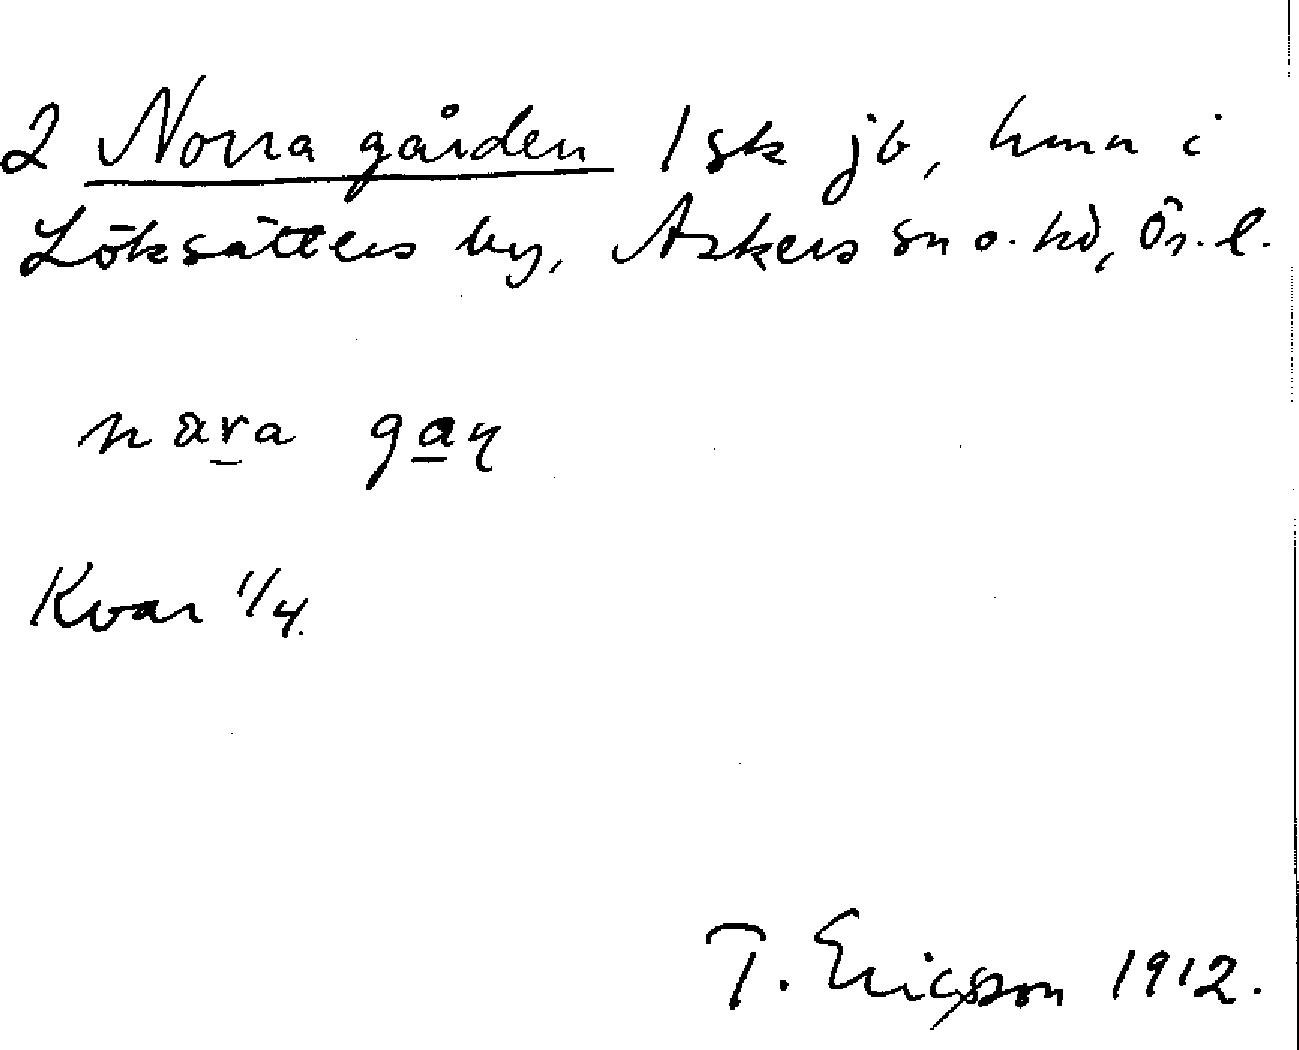 2 Norra gården 1 sk jb, hmn i
Löksätters by, Askers sn o. hd, Ör. l.
nära gaɳ
Kvar 1/4.
T. Ericsson 1912.